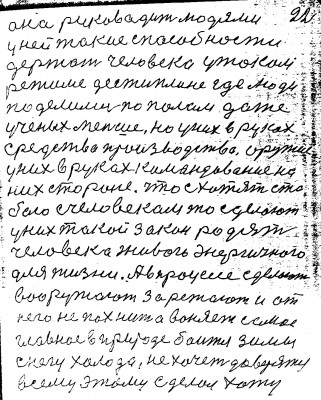 она руководит людями 22
у ней такие способности
держат человека у таком
режиме дестиплине где люди
поделились пополам даже
ученых менше, но у них в руках
средства производства, оружие
у них в руках командование на
них стороне. что схотят сто
было с человекам то сделают
у них такой закон родят
человека живого энергичного
для жизни. А в процессе сделают
вооружают зарежают и от
него не пахнит а воняет самое
главное в природе боится зимы
снегу холода, не хочет доверяти
всему этому сделал хату